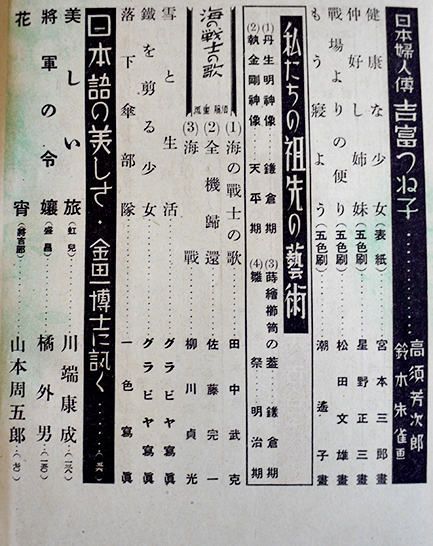 日本婦人傳 吉富つね子…………高須芳次郎
鈴木朱雀画
健康な少女(表紙)……宮本三郎畫
仲好し姉妹(五色刷)……星野正三畫
戰場よりの便り(五色刷)……松田文雄畫
もう寢よう(五色刷)……潮遙子畫
私たちの祖先の藝術
(1)丹生明神像……鎌倉期
(2)執金剛神像……天平期
(3)蒔繪櫛筒の蓋……鎌倉期
(4)雛祭……明治期
海の戰士の歌
(1)海の戰士の歌……田中武克
(2)全機歸還……佐藤完一
(3)海戰……柳川貞光
雪と生活……グラビヤ寫眞
鐵を剪る少女……グラビヤ寫眞
落下傘部隊……一色寫眞
日本語の美しさ・金田一博士に訊く……
美しい旅(虹兒)……川端康成
將軍の令孃(盛昌)……橘外男
花宵……山本周五郎